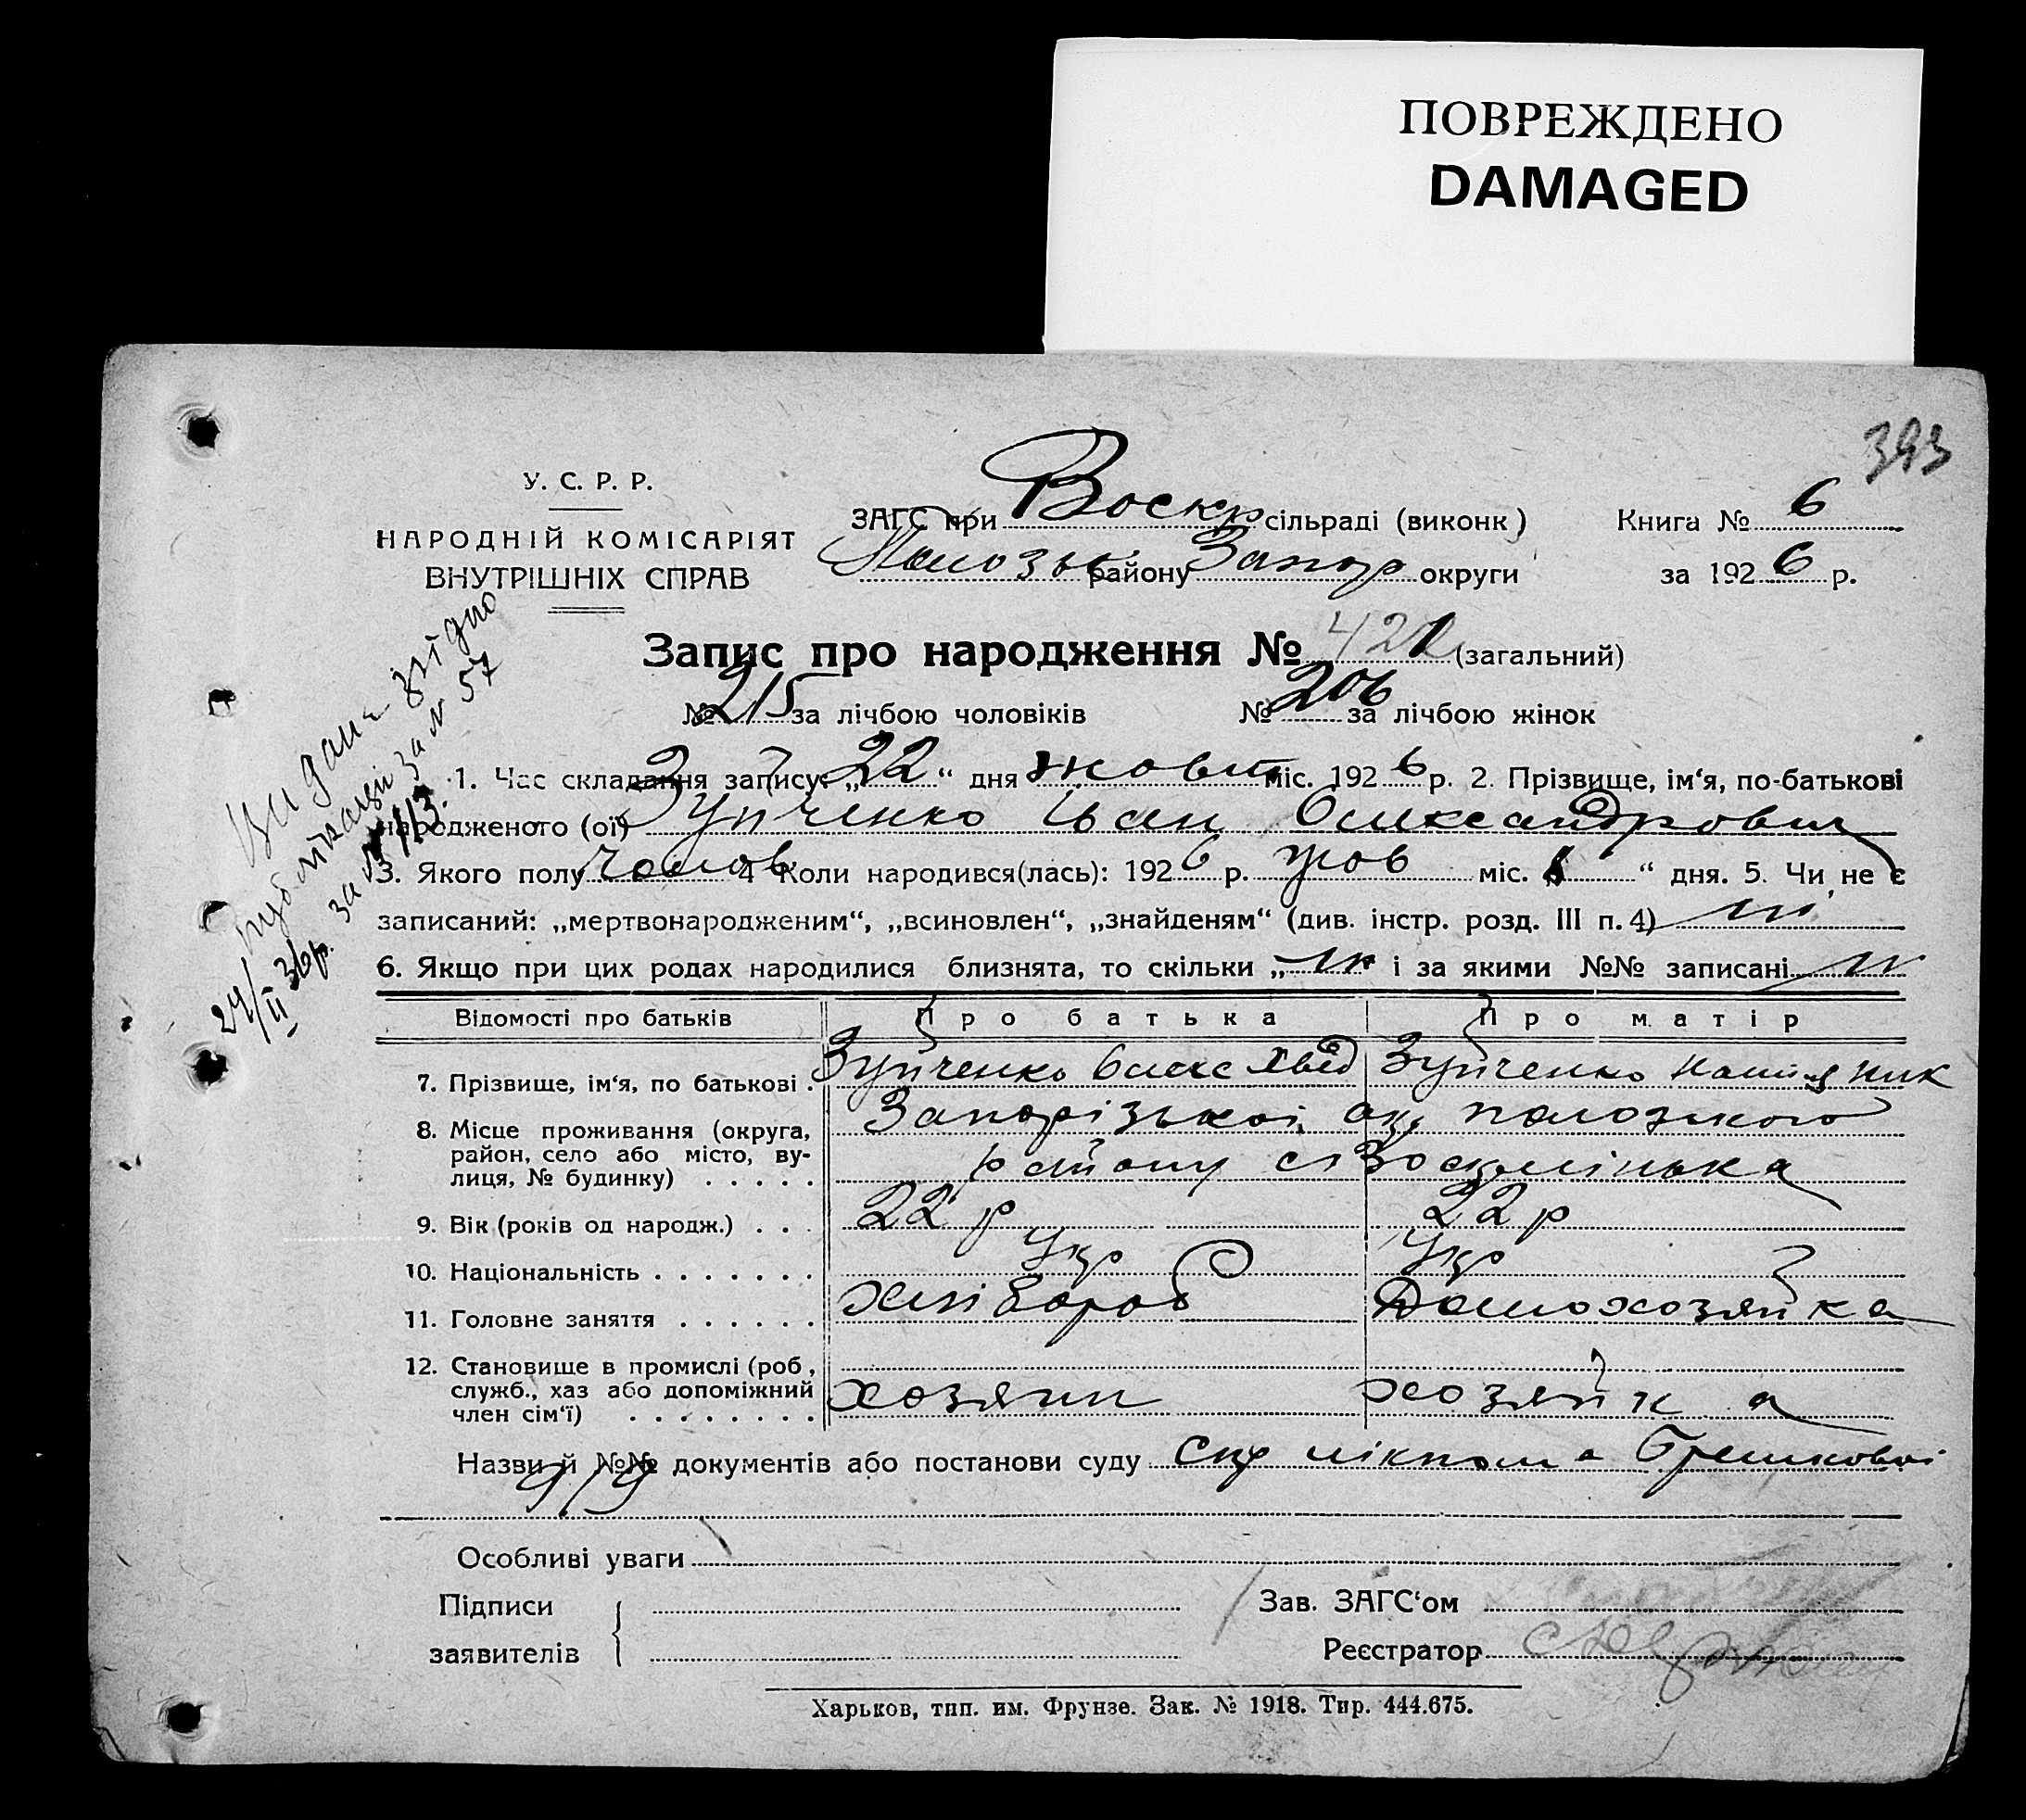 ПОВРЕЖДЕНО
DAMAGED
393
У. С. Р. Р.
НАРОДНІЙ КОМІСАРІЯТ
ВНУТРІШНІХ СПРАВ
ЗАГС при Воскр сільраді (виконк)
Полозьк району Запор округи
Книга № 6
за 1926 р.
Запис про народження № 421 (загальний)
№ 215 за лічбою чоловіків № 206 за лічбою жінок
1. Час складання запису: „22“ дня жовт міс. 1926 р. 2. Прізвище, ім‘я, по-батькові
народженого (ої) Зупченко Іван Олександрович
3. Якого полу чолов 4 Коли народився(лась): 1926 р. жов міс. „ “ дня. 5. Чи не є
записаний: „мертвонародженим“, „всиновлен“, „знайденям“ (див. інстр. розд. III п. 4) ні
6. Якщо при цих родах народилися близнята, то скільки „ і за якими №№ записані
Відомості про батьків Про батька Про матір
7. Прізвище, ім‘я, по батькові . Зупченко Олекс Хвед Зупченко Ник
8. Місце проживання (округа, Запорізькоі ок, полозького
район, село або місто, ву-
лиця, № будинку) . . . . . району с
9. Вік (років од народж.) . . . 22 р 22 р
10. Національність . . . . . . . Укр Укр
11. Головне заняття . . . . . . Хлібороб Домохозяйка
12. Становище в промислі (роб,
служб., хаз або допоміжний хозяин хозяйка
член сім‘ї) . . . . . . . .
Назви й №№ документів або постанови суду
9/9
Особливі уваги
Підписи
заявителів
Зав. ЗАГС‘ом
Реєстратор
Харьков, тип. им. Фрунзе. Зак. № 1918. Тир. 444.675.
Видані згідно
за № 57
24/II 36р. за № 113.